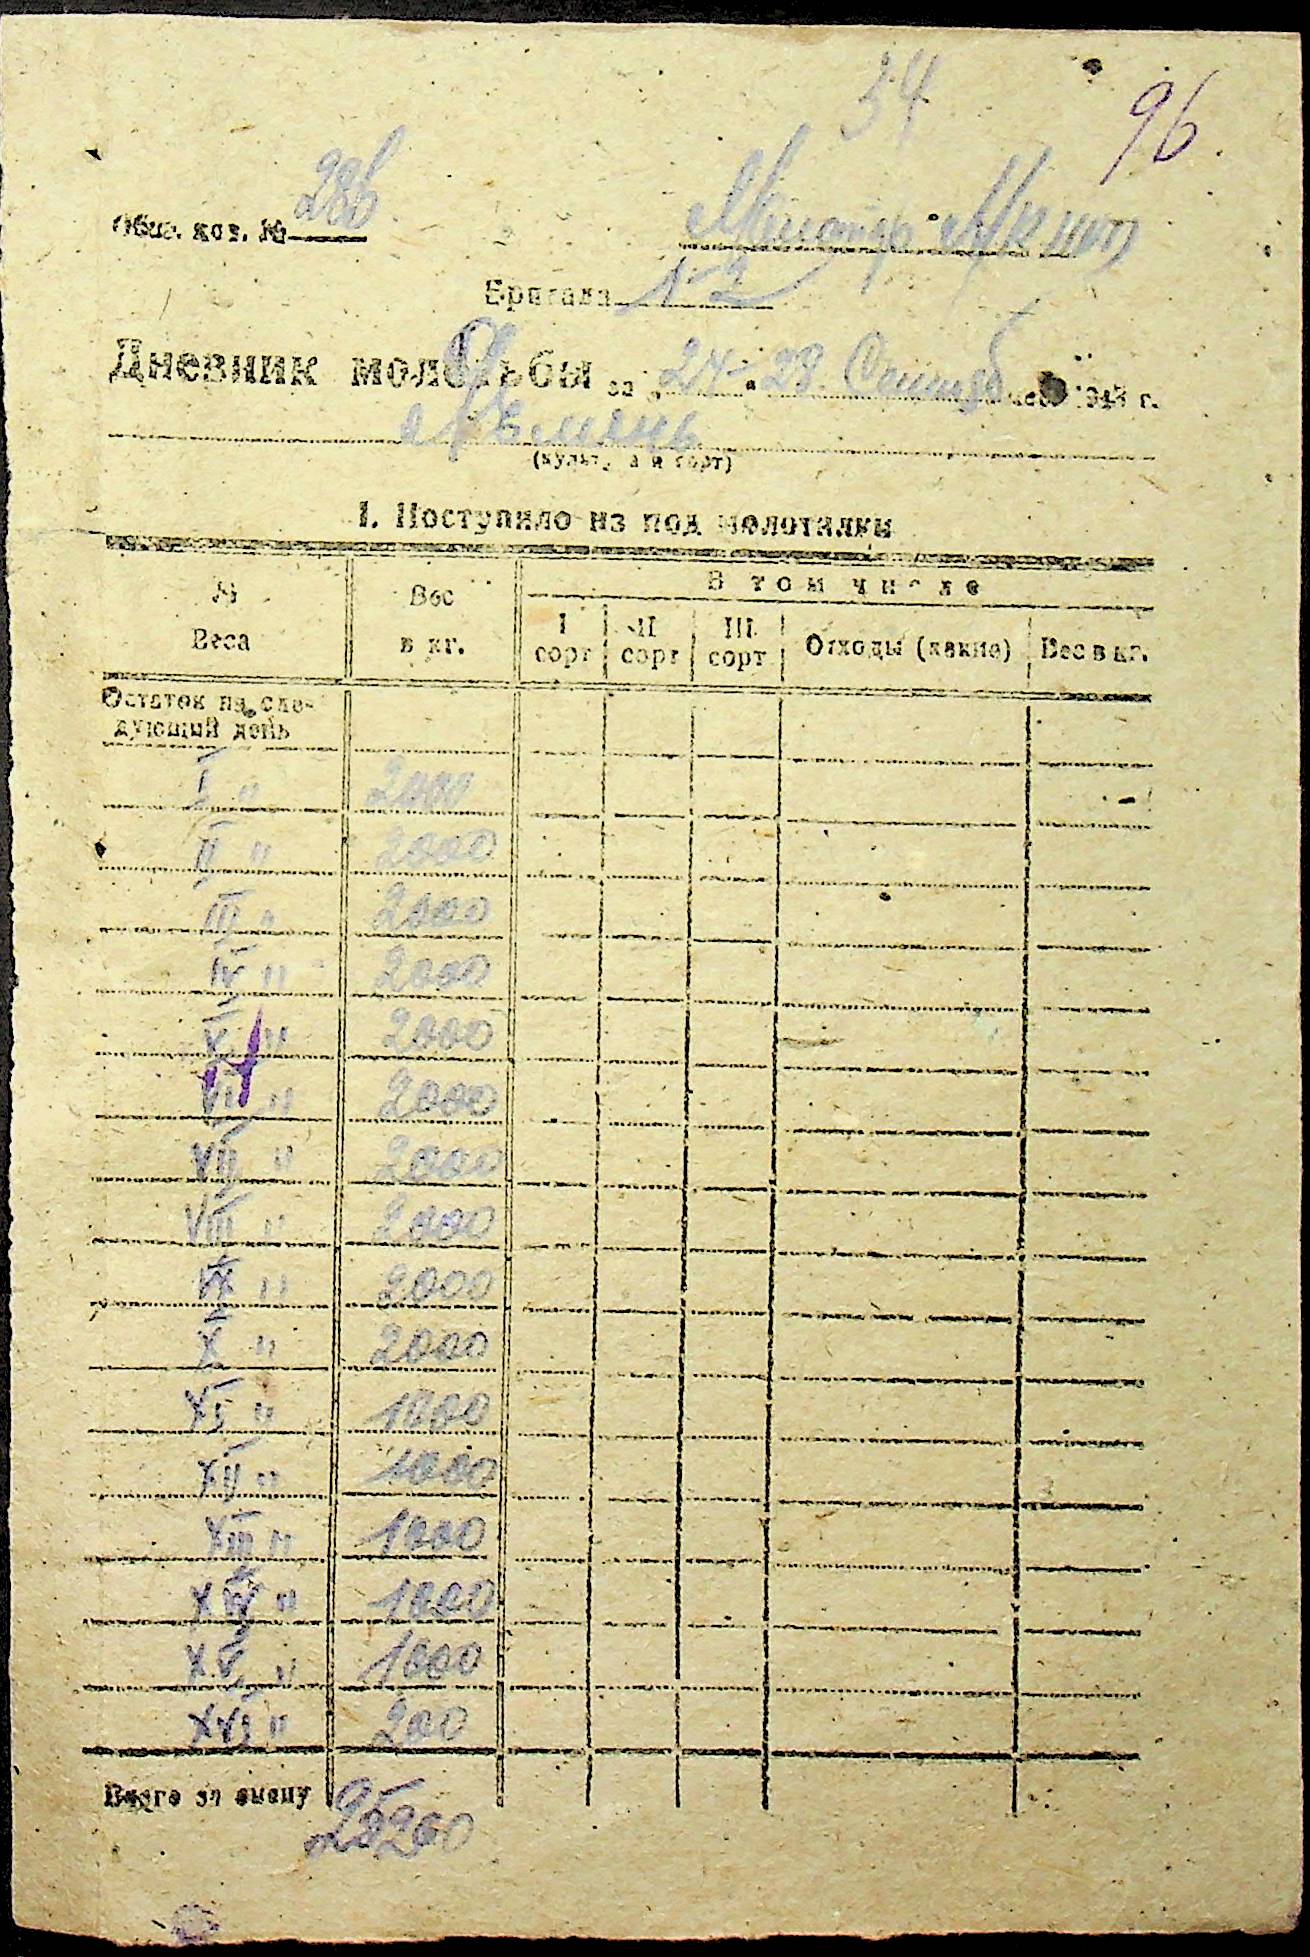 34
96
Обяз. хоз. № 286
Бригада N 2
Дневник молотьбы за „24-28 Сентяб 194 г.
Ячмень
(культура и сорт)
1. Поступило из под молотилки
№ Веса Вес в кг. В том числе
I сорт II сорт III сорт Отходы (какие) Вес в кг.
Остаток на сле-
дующий день
I " 2000
II " 2000
III " 2000
IV " 2000
V " 2000
VI " 2000
VII " 2000
VIII " 2000
IX " 2000
X " 2000
XI " 1000
XII " 1000
XIII " 1000
XIV " 1000
XV " 1000
XVI " 200
Всего за смену 25200